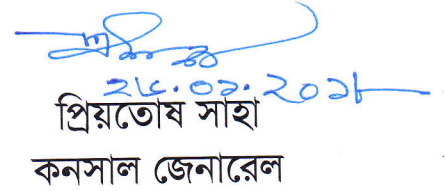 ২৫.০১.২০১৮
প্রিয়তোষ সাহা
কনসাল জেনারেল